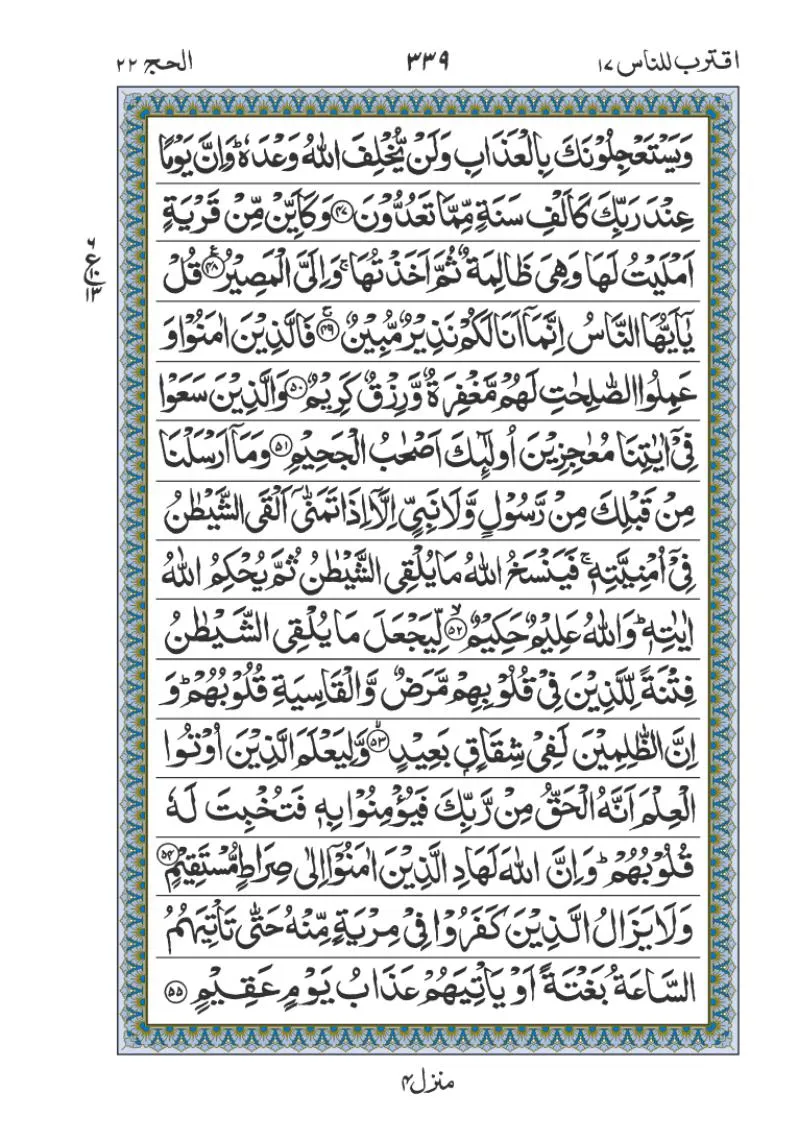 اقترب للناس ۱۷
۳۳۹
الحج ۲۲
وَيَسْتَعْجِلُوْنَكَ بِالْعَذَابِ وَلَنْ يُّخْلِفَ اللّٰهُ وَعْدَهٗ ؕ وَاِنَّ يَوْمًا
عِنْدَ رَبِّكَ كَاَلْفِ سَنَةٍ مِّمَّا تَعُدُّوْنَ ﴿۴۷﴾ وَكَاَيِّنْ مِّنْ قَرْيَةٍ
اَمْلَيْتُ لَهَا وَهِيَ ظَالِمَةٌ ثُمَّ اَخَذْتُهَا ۚ وَاِلَيَّ الْمَصِيْرُ ﴿۴۸﴾ قُلْ
۶ ع ۱۳
يٰۤاَيُّهَا النَّاسُ اِنَّمَاۤ اَنَا لَكُمْ نَذِيْرٌ مُّبِيْنٌ ﴿۴۹﴾ ۚ فَالَّذِيْنَ اٰمَنُوْا وَ
عَمِلُوا الصّٰلِحٰتِ لَهُمْ مَّغْفِرَةٌ وَّرِزْقٌ كَرِيْمٌ ﴿۵۰﴾ وَالَّذِيْنَ سَعَوْا
فِيْۤ اٰيٰتِنَا مُعٰجِزِيْنَ اُولٰٓئِكَ اَصْحٰبُ الْجَحِيْمِ ﴿۵۱﴾ وَمَاۤ اَرْسَلْنَا
مِنْ قَبْلِكَ مِنْ رَّسُوْلٍ وَّلَا نَبِيٍّ اِلَّاۤ اِذَا تَمَنّٰۤى اَلْقَى الشَّيْطٰنُ
فِيْۤ اُمْنِيَّتِهٖ ۚ فَيَنْسَخُ اللّٰهُ مَا يُلْقِى الشَّيْطٰنُ ثُمَّ يُحْكِمُ اللّٰهُ
اٰيٰتِهٖ ؕ وَاللّٰهُ عَلِيْمٌ حَكِيْمٌ ﴿۵۲﴾ ۙ لِّيَجْعَلَ مَا يُلْقِى الشَّيْطٰنُ
فِتْنَةً لِّلَّذِيْنَ فِيْ قُلُوْبِهِمْ مَّرَضٌ وَّالْقَاسِيَةِ قُلُوْبُهُمْ ؕ وَ
اِنَّ الظّٰلِمِيْنَ لَفِيْ شِقَاقٍۭ بَعِيْدٍ ﴿۵۳﴾ ۙ وَّلِيَعْلَمَ الَّذِيْنَ اُوْتُوا
الْعِلْمَ اَنَّهُ الْحَقُّ مِنْ رَّبِّكَ فَيُؤْمِنُوْا بِهٖ فَتُخْبِتَ لَهٗ
قُلُوْبُهُمْ ؕ وَاِنَّ اللّٰهَ لَهَادِ الَّذِيْنَ اٰمَنُوْۤا اِلٰى صِرَاطٍ مُّسْتَقِيْمٍ ﴿۵۴﴾
وَلَا يَزَالُ الَّذِيْنَ كَفَرُوْا فِيْ مِرْيَةٍ مِّنْهُ حَتّٰى تَاْتِيَهُمُ
السَّاعَةُ بَغْتَةً اَوْ يَاْتِيَهُمْ عَذَابُ يَوْمٍ عَقِيْمٍ ﴿۵۵﴾
منزل ۴